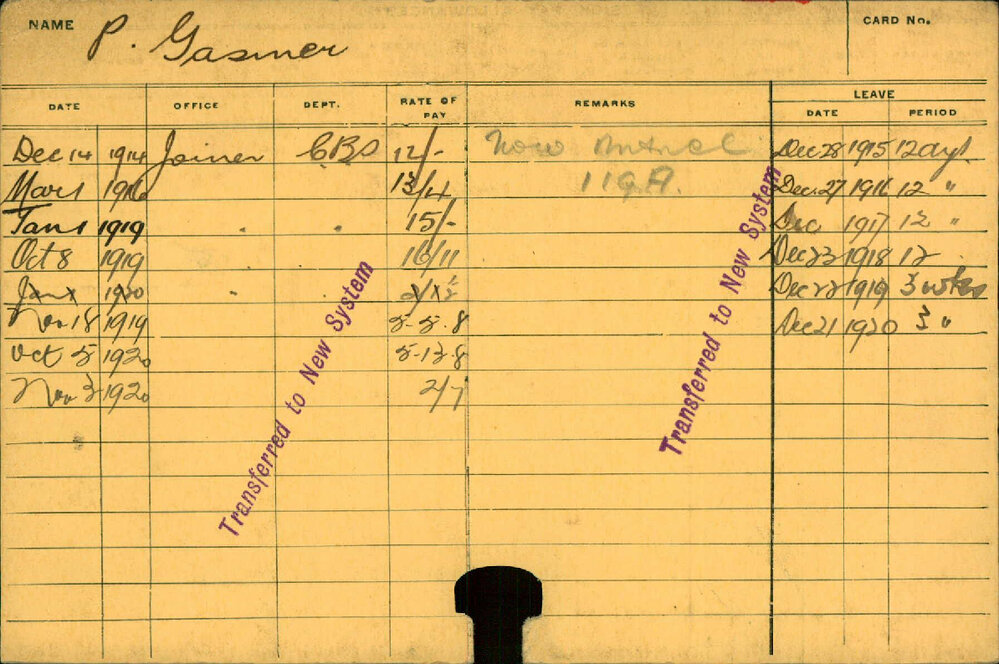 NAME P. Gasmer CARD No.
LEAVE
DATE OFFICE DEPT. RATE OF PAY REMARKS DATE PERIOD
Dec 14 1914 Joiner CBD 12/- Now Dec 28 1915 12 days
Mar 1 1916 " 13/4 119A. Dec. 27 1916 12 "
Jan 1 1919 " " 15/- Dec 1917 12 "
Oct 8 1919 16/11 Dec 23 1918 12
Jan 1 1920 " Dec 22 1919 3 wks
Nov 18 1919 5-5.8 Dec 21 1920 3 "
Oct 5 1920 5-13-8
Nov 3 1920 2/7
Transferred to New System
Transferred to New System